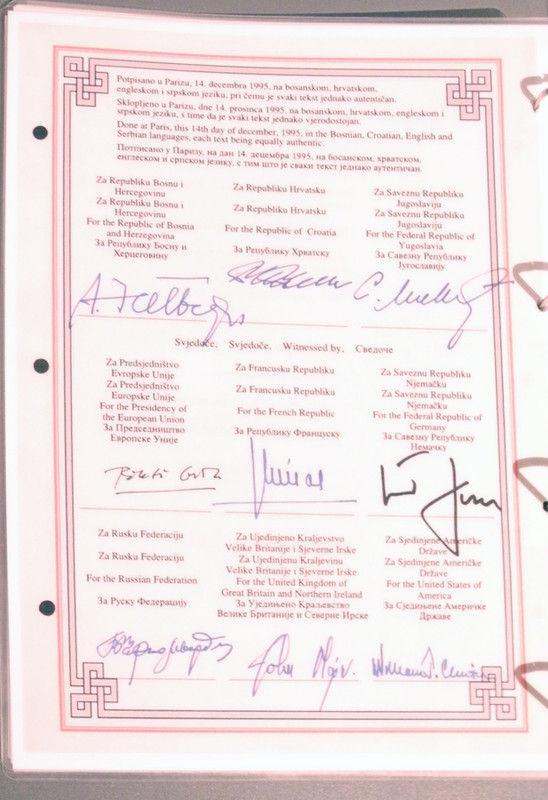 Potpisano u Parizu, 14. decembra 1995, na bosanskom, hrvatskom,
engleskom i srpskom jeziku, pri čemu je svaki tekst jednako autentičan.
Sklopljeno u Parizu, dne 14. prosinca 1995, na bosanskom, hrvatskom, engleskom i
srpskom jeziku, s time da je svaki tekst jednako vjerodostojan.
Done at Paris, this 14th day of december, 1995, in the Bosnian, Croatian, English and
Serbian languages, each text being equally authentic.
Потписано у Паризу, на дан 14. децембра 1995, на босанском, хрватском,
енглеском и српском језику, с тим што је сваки текст једнако аутентичан.
Za Republiku Bosnu i
Hercegovinu
Za Republiku Bosnu i
Hercegovinu
For the Republic of Bosnia
and Herzegovina
За Републику Босну и
Херцеговину
Za Republiku Hrvatsku
Za Republiku Hrvatsku
For the Republic of Croatia
За Републику Хрватску
Za Saveznu Republiku
Jugoslaviju
Za Saveznu Republiku
Jugoslaviju
For the Federal Republic of
Yugoslavia
За Савезну Републику
Југославију
Svjedoče, Svjedoče, Witnessed by, Сведоче
Za Predsjedništvo
Evropske Unije
Za Predsjedništvo
Europske Unije
For the Presidency of
the European Union
За Председништво
Европске Уније
Za Francusku Republiku
Za Francusku Republiku
For the French Republic
За Републику Француску
Za Saveznu Republiku
Njemačku
Za Saveznu Republiku
Njemačku
For the Federal Republic of
Germany
За Савезну Републику
Немачку
Za Rusku Federaciju
Za Rusku Federaciju
For the Russian Federation
За Руску Федерацију
Za Ujedinjeno Kraljevstvo
Velike Britanije i Sjeverne Irske
Za Ujedinjenu Kraljevinu
Velike Britanije i Sjeverne Irske
For the United Kingdom of
Great Britain and Northern Ireland
За Уједињено Краљевство
Велике Британије и Северне Ирске
Za Sjedinjene Američke
Države
Za Sjedinjene Američke
Države
For the United States of
America
За Сједињене Америчке
Државе
John Major